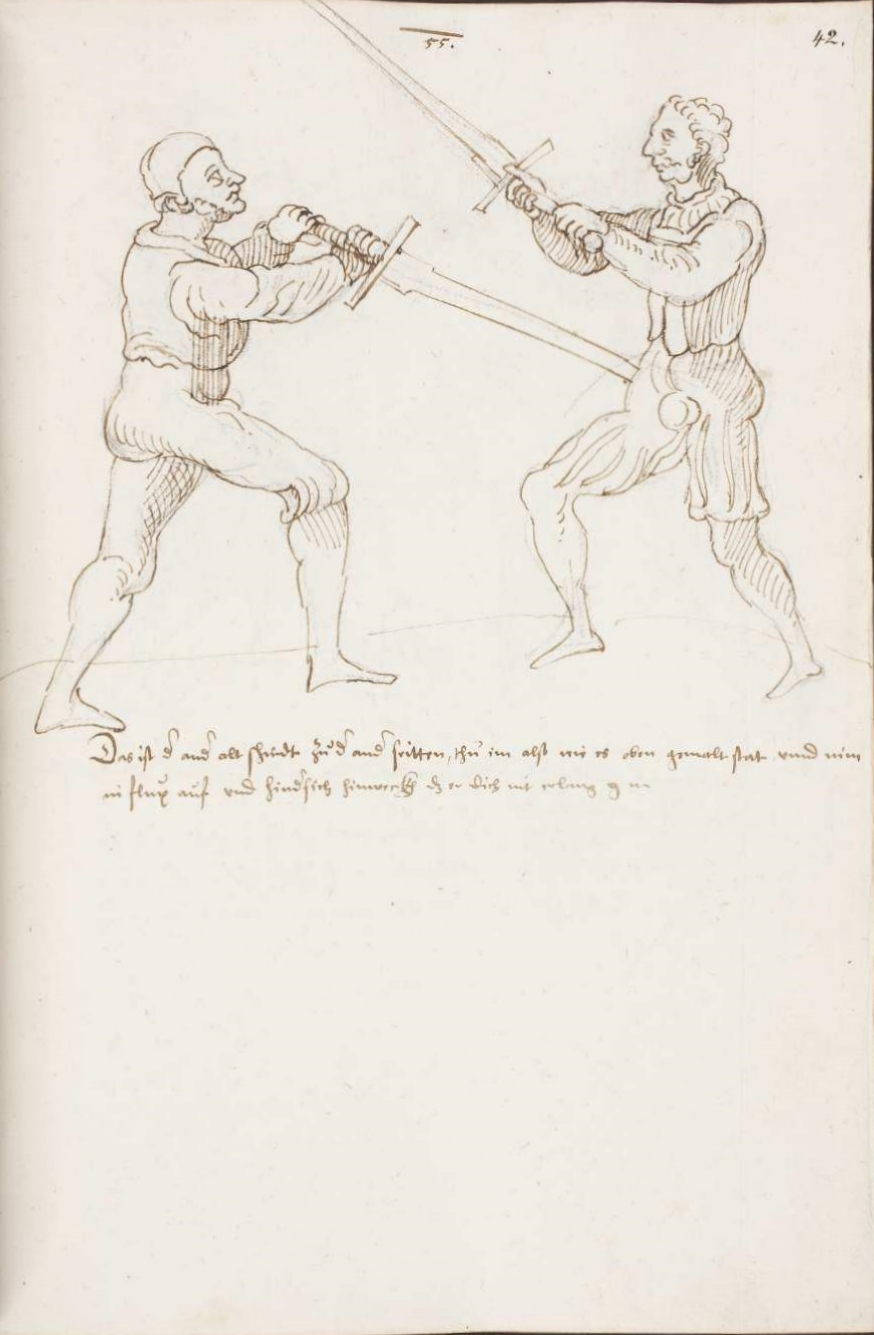 55.
42.
Das ist d̉ and̉ alt schnidt zu d̉ and̉ seitten, thu im alß wie es oben gemalt stat vnnd nim
in flux auf vnd hind̉sich hinweckh dz er dich nit erlang